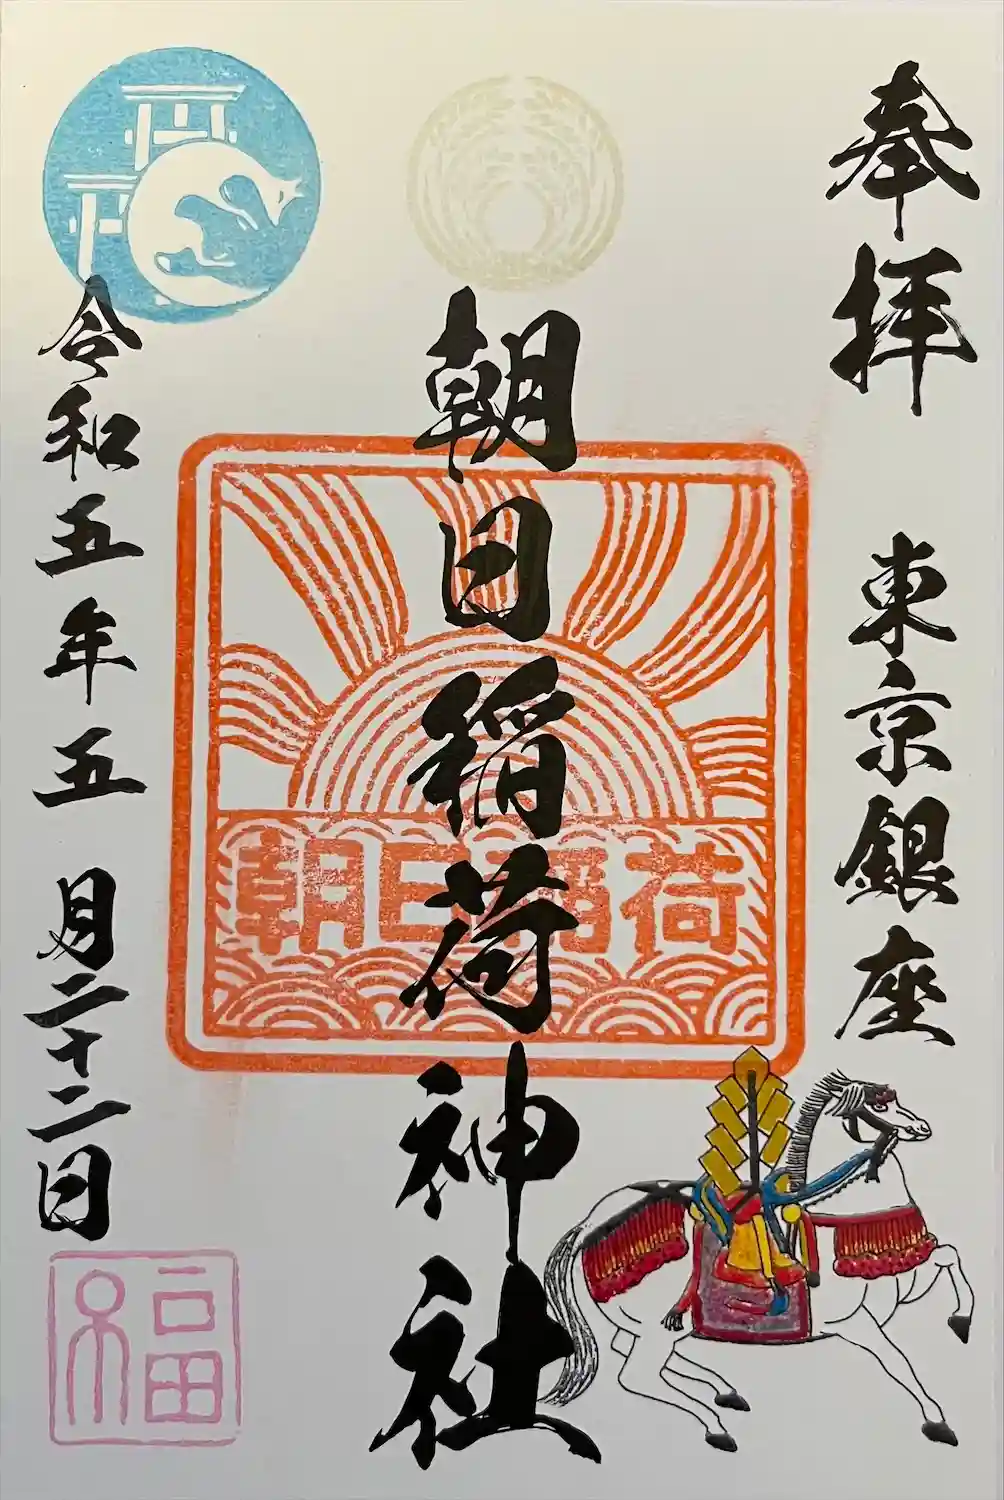 奉拝
東京銀座
朝日稲荷神社
朝日稲荷
令和五年五月二十二日
福